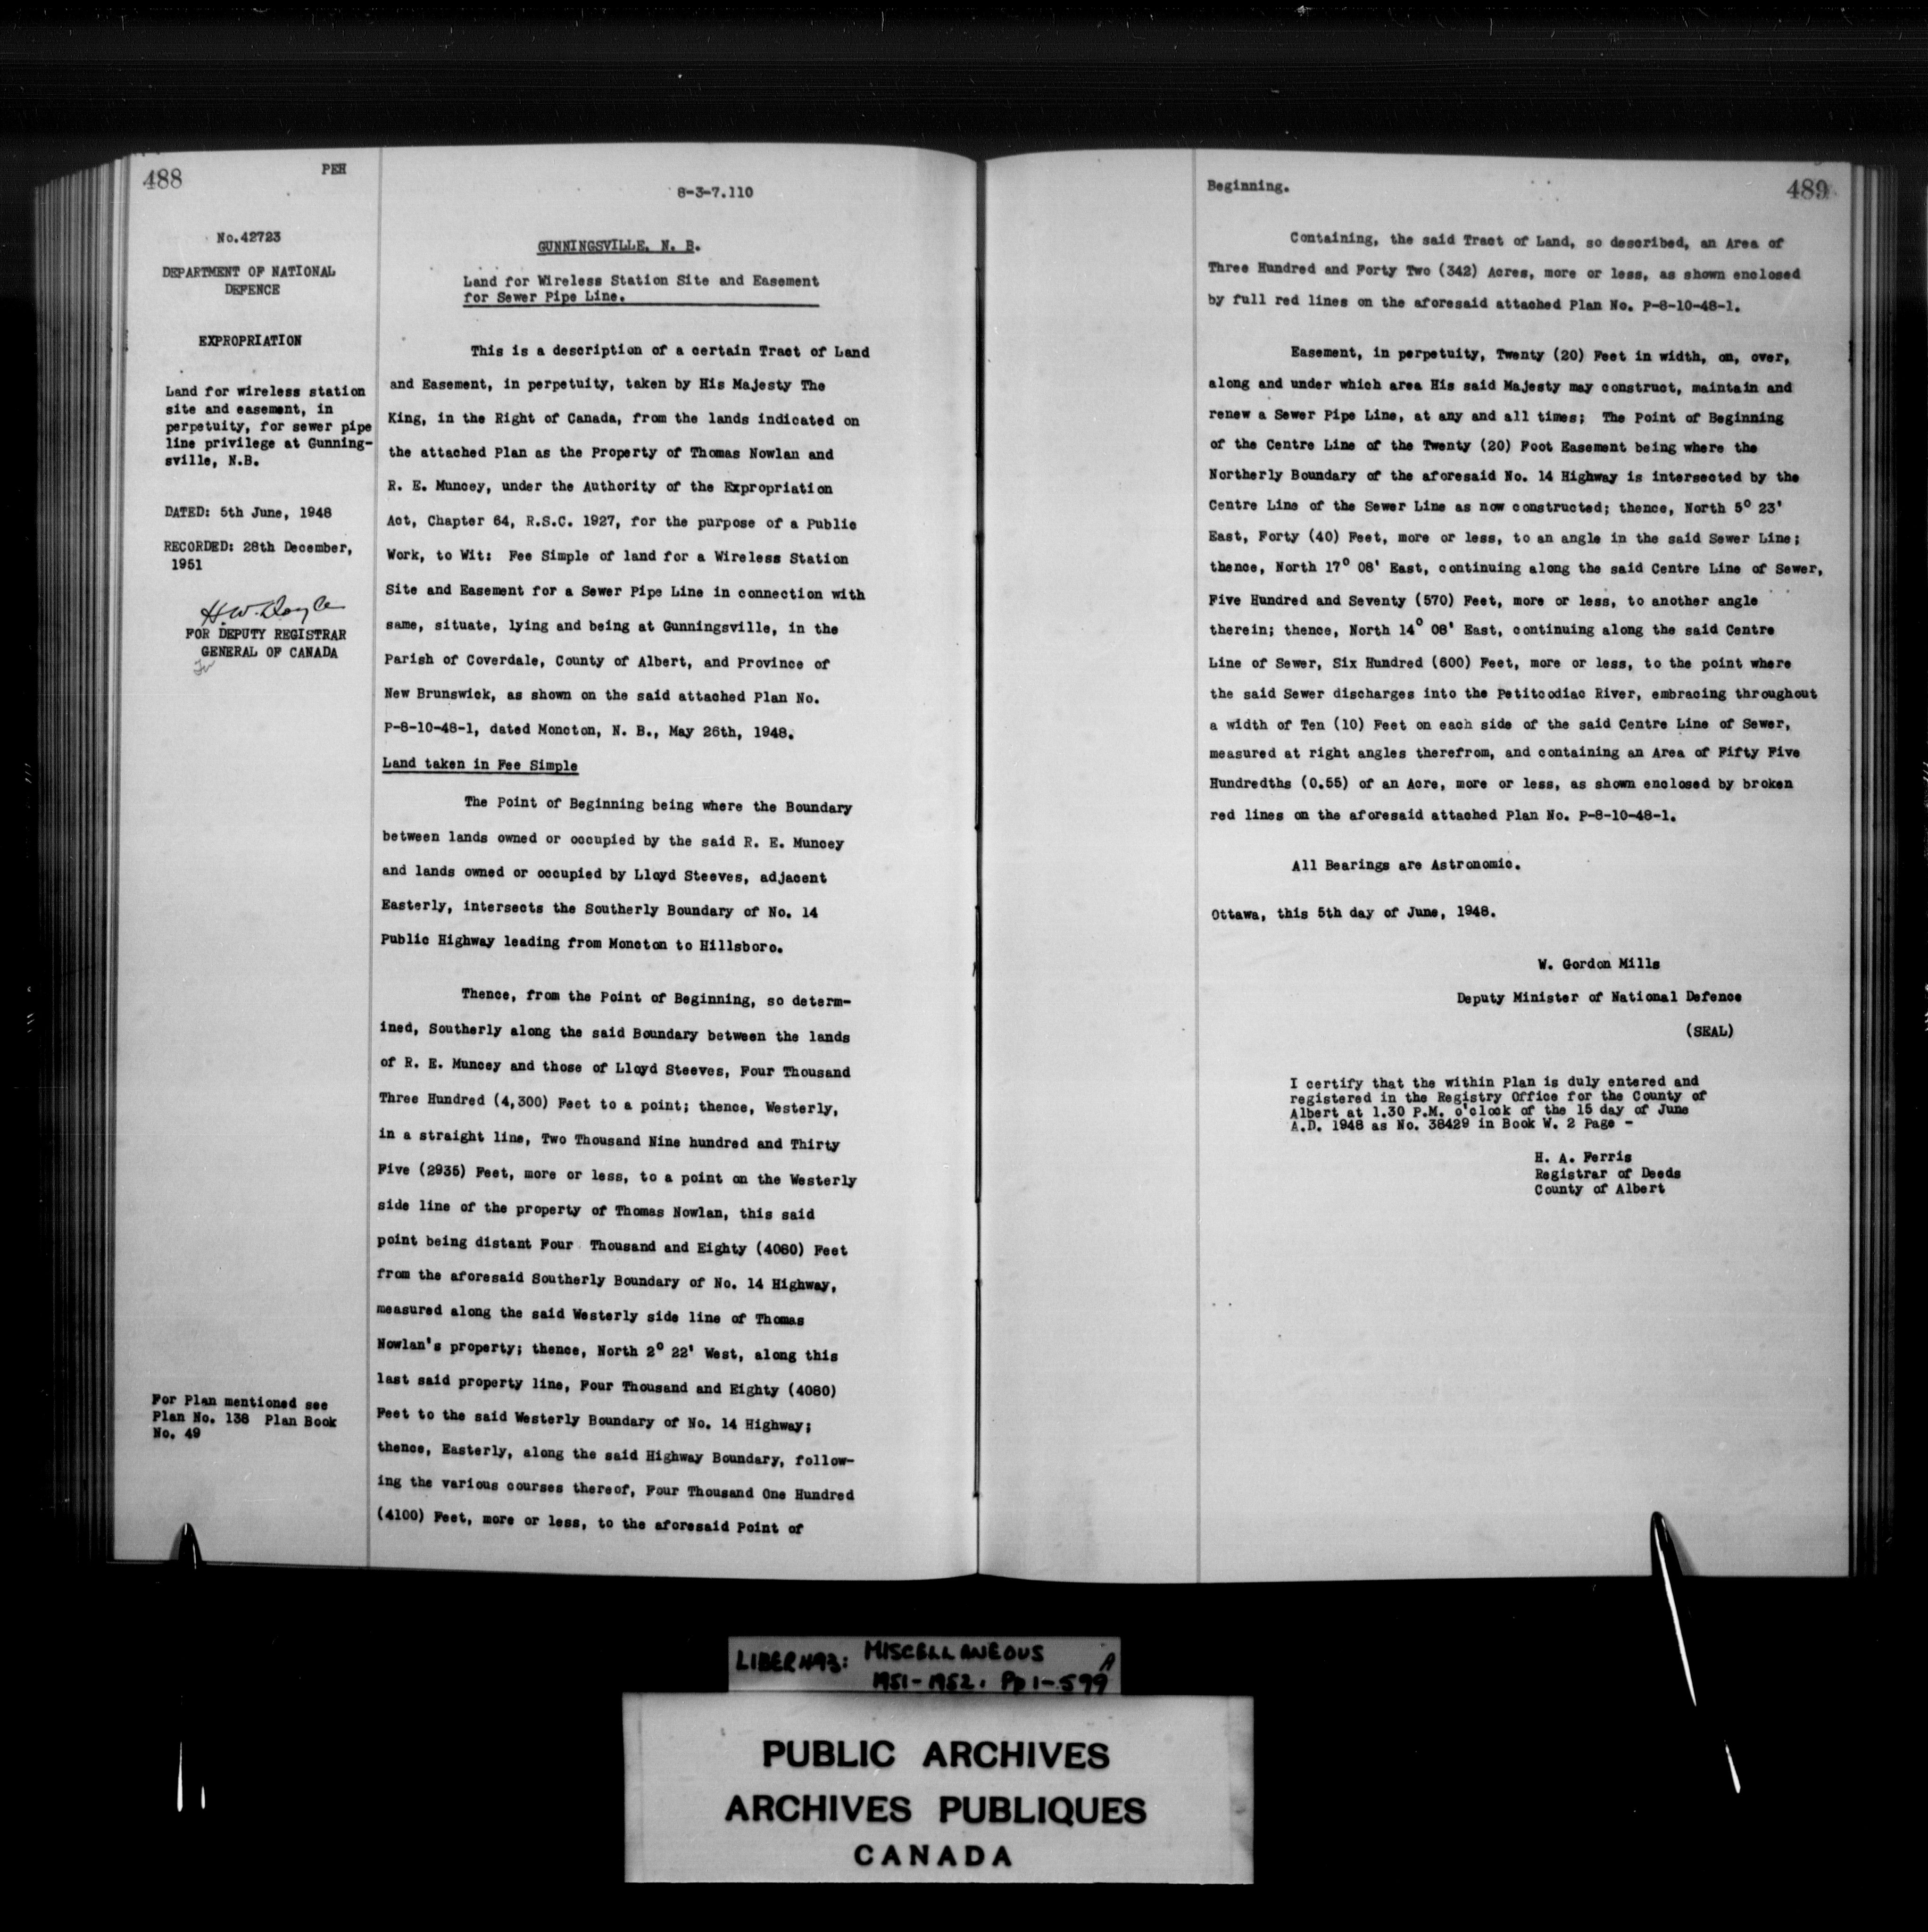 488
PEH
No.42723
DEPARTMENT OF NATIONAL
DEFENCE
EXPROPRIATION
Land for wireless station
site and easement, in
perpetuity, for sewer pipe
line privilege at Gunning-
sville, N.B.
DATED: 5th June, 1948
RECORDED: 28th December,
1951
H.W. Doyle
FOR DEPUTY REGISTRAR
GENERAL OF CANADA
For Plan mentioned see
Plan No. 138 Plan Book
No. 49
8-3-7.110
GUNNINGSVILLE, N. B.
Land for Wireless Station Site and Easement
for Sewer Pipe Line.
This is a description of a certain Tract of Land
and Easement, in perpetuity, taken by His Majesty The
King, in the Right of Canada, from the lands indicated on
the attached Plan as the Property of Thomas Nowlan and
R. E. Muncey, under the Authority of the Expropriation
Act, Chapter 64, R.S.C. 1927, for the purpose of a Public
Work, to Wit: Fee Simple of land for a Wireless Station
Site and Easement for a Sewer Pipe Line in connection with
same, situate, lying and being at Gunningsville, in the
Parish of Coverdale, County of Albert, and Province of
New Brunswick, as shown on the said attached Plan No.
P-8-10-48-1, dated Moncton, N. B., May 26th, 1948.
Land taken in Fee Simple
The Point of Beginning being where the Boundary
between lands owned or occupied by the said R. E. Muncey
and lands owned or occupied by Lloyd Steeves, adjacent
Easterly, intersects the Southerly Boundary of No. 14
Public Highway leading from Moncton to Hillsboro.
Thence, from the Point of Beginning, so determ-
ined, Southerly along the said Boundary between the lands
of R. E. Muncey and those of Lloyd Steeves, Four Thousand
Three Hundred (4,300) Feet to a point; thence, Westerly,
in a straight line, Two Thousand Nine hundred and Thirty
Five (2935) Feet, more or less, to a point on the Westerly
side line of the property of Thomas Nowlan, this said
point being distant Four Thousand and Eighty (4080) Feet
from the aforesaid Southerly Boundary of No. 14 Highway,
measured along the said Westerly side line of Thomas
Nowlan's property; thence, North 2° 22' West, along this
last said property line, Four Thousand and Eighty (4080)
Feet to the said Westerly Boundary of No. 14 Highway;
thence, Easterly, along the said Highway Boundary, follow-
ing the various courses thereof, Four Thousand One Hundred
(4100) Feet, more or less, to the aforesaid Point of
489
Beginning.
Containing, the said Tract of Land, so described, an Area of
Three Hundred and Forty Two (342) Acres, more or less, as shown enclosed
by full red lines on the aforesaid attached Plan No. P-8-10-48-1.
Easement, in perpetuity, Twenty (20) Feet in width, on, over,
along and under which area His said Majesty may construct, maintain and
renew a Sewer Pipe Line, at any and all times; The Point of Beginning
of the Centre Line of the Twenty (20) Foot Easement being where the
Northerly Boundary of the aforesaid No. 14 Highway is intersected by the
Centre Line of the Sewer Line as now constructed; thence, North 5° 23'
East, Forty (40) Feet, more or less, to an angle in the said Sewer Line;
thence, North 17° 08' East, continuing along the said Centre Line of Sewer,
Five Hundred and Seventy (570) Feet, more or less, to another angle
therein; thence, North 14° 08' East, continuing along the said Centre
Line of Sewer, Six Hundred (600) Feet, more or less, to the point where
the said Sewer discharges into the Petitcodiac River, embracing throughout
a width of Ten (10) Feet on each side of the said Centre Line of Sewer,
measured at right angles therefrom, and containing an Area of Fifty Five
Hundredths (0.55) of an Acre, more or less, as shown enclosed by broken
red lines on the aforesaid attached Plan No. P-8-10-48-1.
All Bearings are Astronomic.
Ottawa, this 5th day of June, 1948.
W. Gordon Mills
Deputy Minister of National Defence
(SEAL)
I certify that the within Plan is duly entered and
registered in the Registry Office for the County of
Albert at 1.30 P.M. o'clock of the 15 day of June
A.D. 1948 as No. 38429 in Book W. 2 Page -
H. A. Ferris
Registrar of Deeds
County of Albert
LIBER 493: MISCELLANEOUS A
1951-1952. Pp 1-599
PUBLIC ARCHIVES
ARCHIVES PUBLIQUES
CANADA